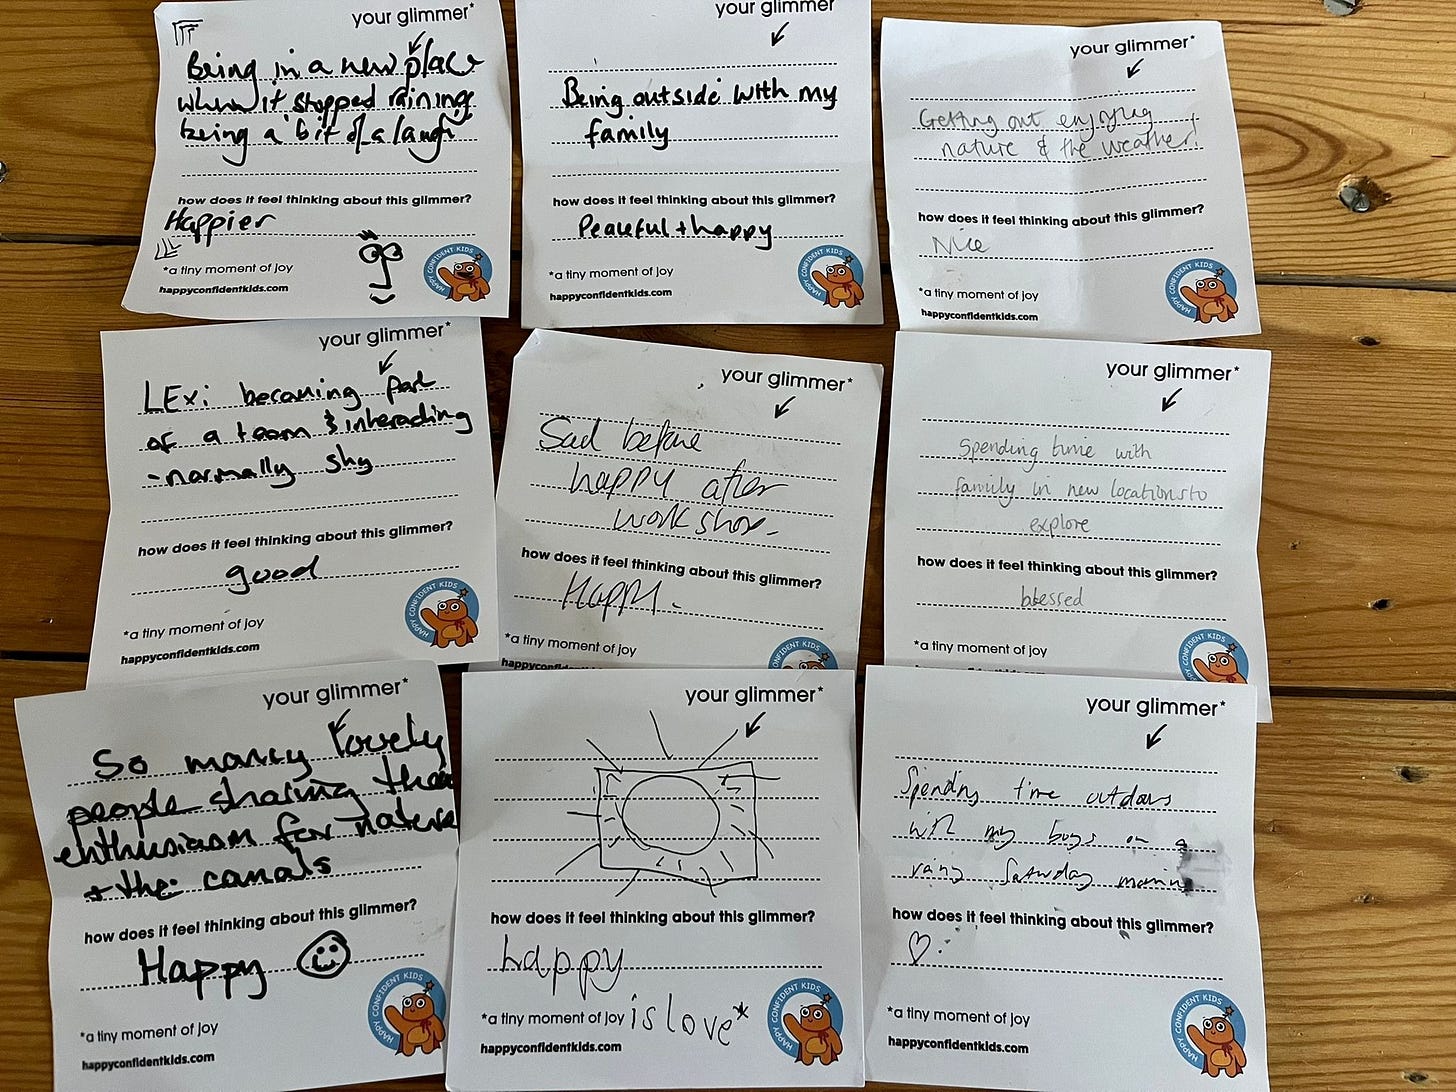 your glimmer*
Being in a new place
when it stopped raining
being a bit of a laugh
how does it feel thinking about this glimmer?
Happier
*a tiny moment of joy
happyconfidentkids.com
HAPPY CONFIDENT KIDS
your glimmer
Being outside with my
family
how does it feel thinking about this glimmer?
Peaceful + happy
*a tiny moment of joy
happyconfidentkids.com
HAPPY CONFIDENT KIDS
your glimmer*
Getting out enjoying
nature & the weather!
how does it feel thinking about this glimmer?
Nice
*a tiny moment of joy
happyconfidentkids.com
HAPPY CONFIDENT KIDS
your glimmer*
LExi becoming part
of a team & interacting
- normally shy
how does it feel thinking about this glimmer?
good
*a tiny moment of joy
happyconfidentkids.com
HAPPY CONFIDENT KIDS
your glimmer*
Sad before
happy after
workshop.
how does it feel thinking about this glimmer?
Happy.
*a tiny moment of joy
happyconfidentkids.com
CONFIDENT KIDS
your glimmer*
Spending time with
family in new locations to
explore
how does it feel thinking about this glimmer?
blessed
*a tiny moment of joy
CONFIDENT KIDS
your glimmer*
So many lovely
people sharing their
enthusiasm for nature
+ the canals
how does it feel thinking about this glimmer?
Happy
*a tiny moment of joy
happyconfidentkids.com
HAPPY CONFIDENT KIDS
your glimmer*
how does it feel thinking about this glimmer?
happy
*a tiny moment of joy is love*
happyconfidentkids.com
HAPPY CONFIDENT KIDS
your glimmer*
Spending time outdoors
with my boys on a
rainy Saturday morning
how does it feel thinking about this glimmer?
*a tiny moment of joy
happyconfidentkids.com
HAPPY CONFIDENT KIDS